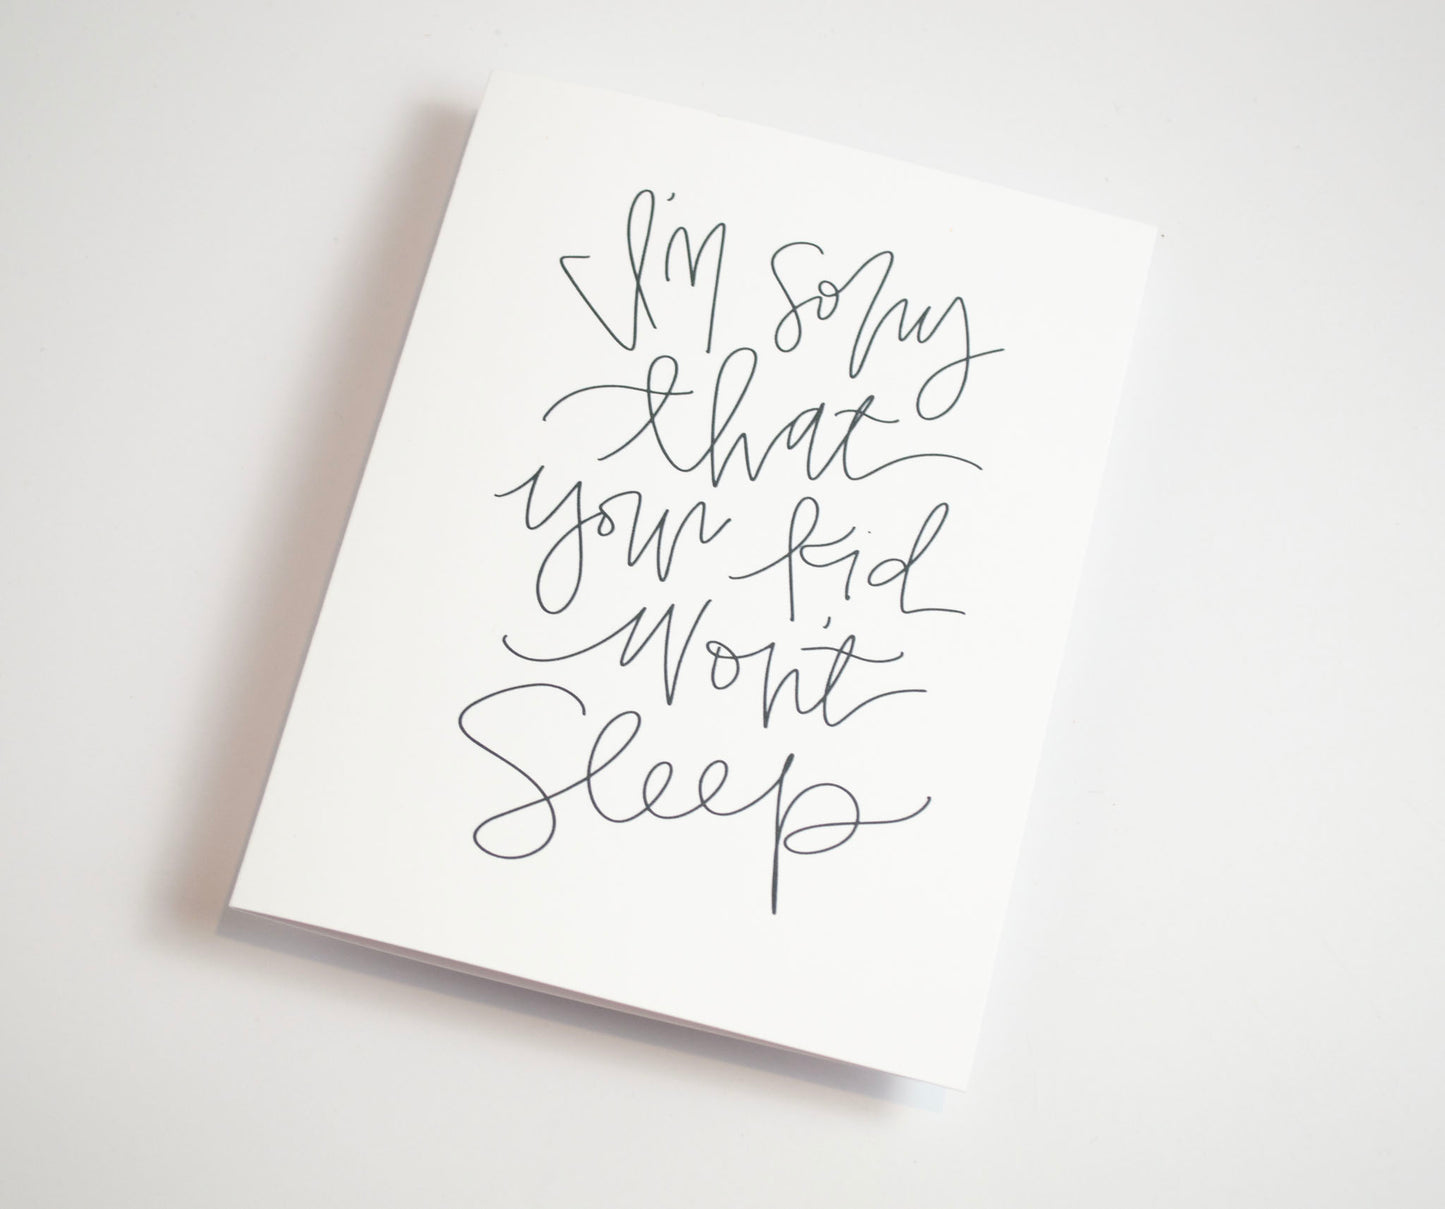 I'm sorry
that
your kid
Won't
Sleep